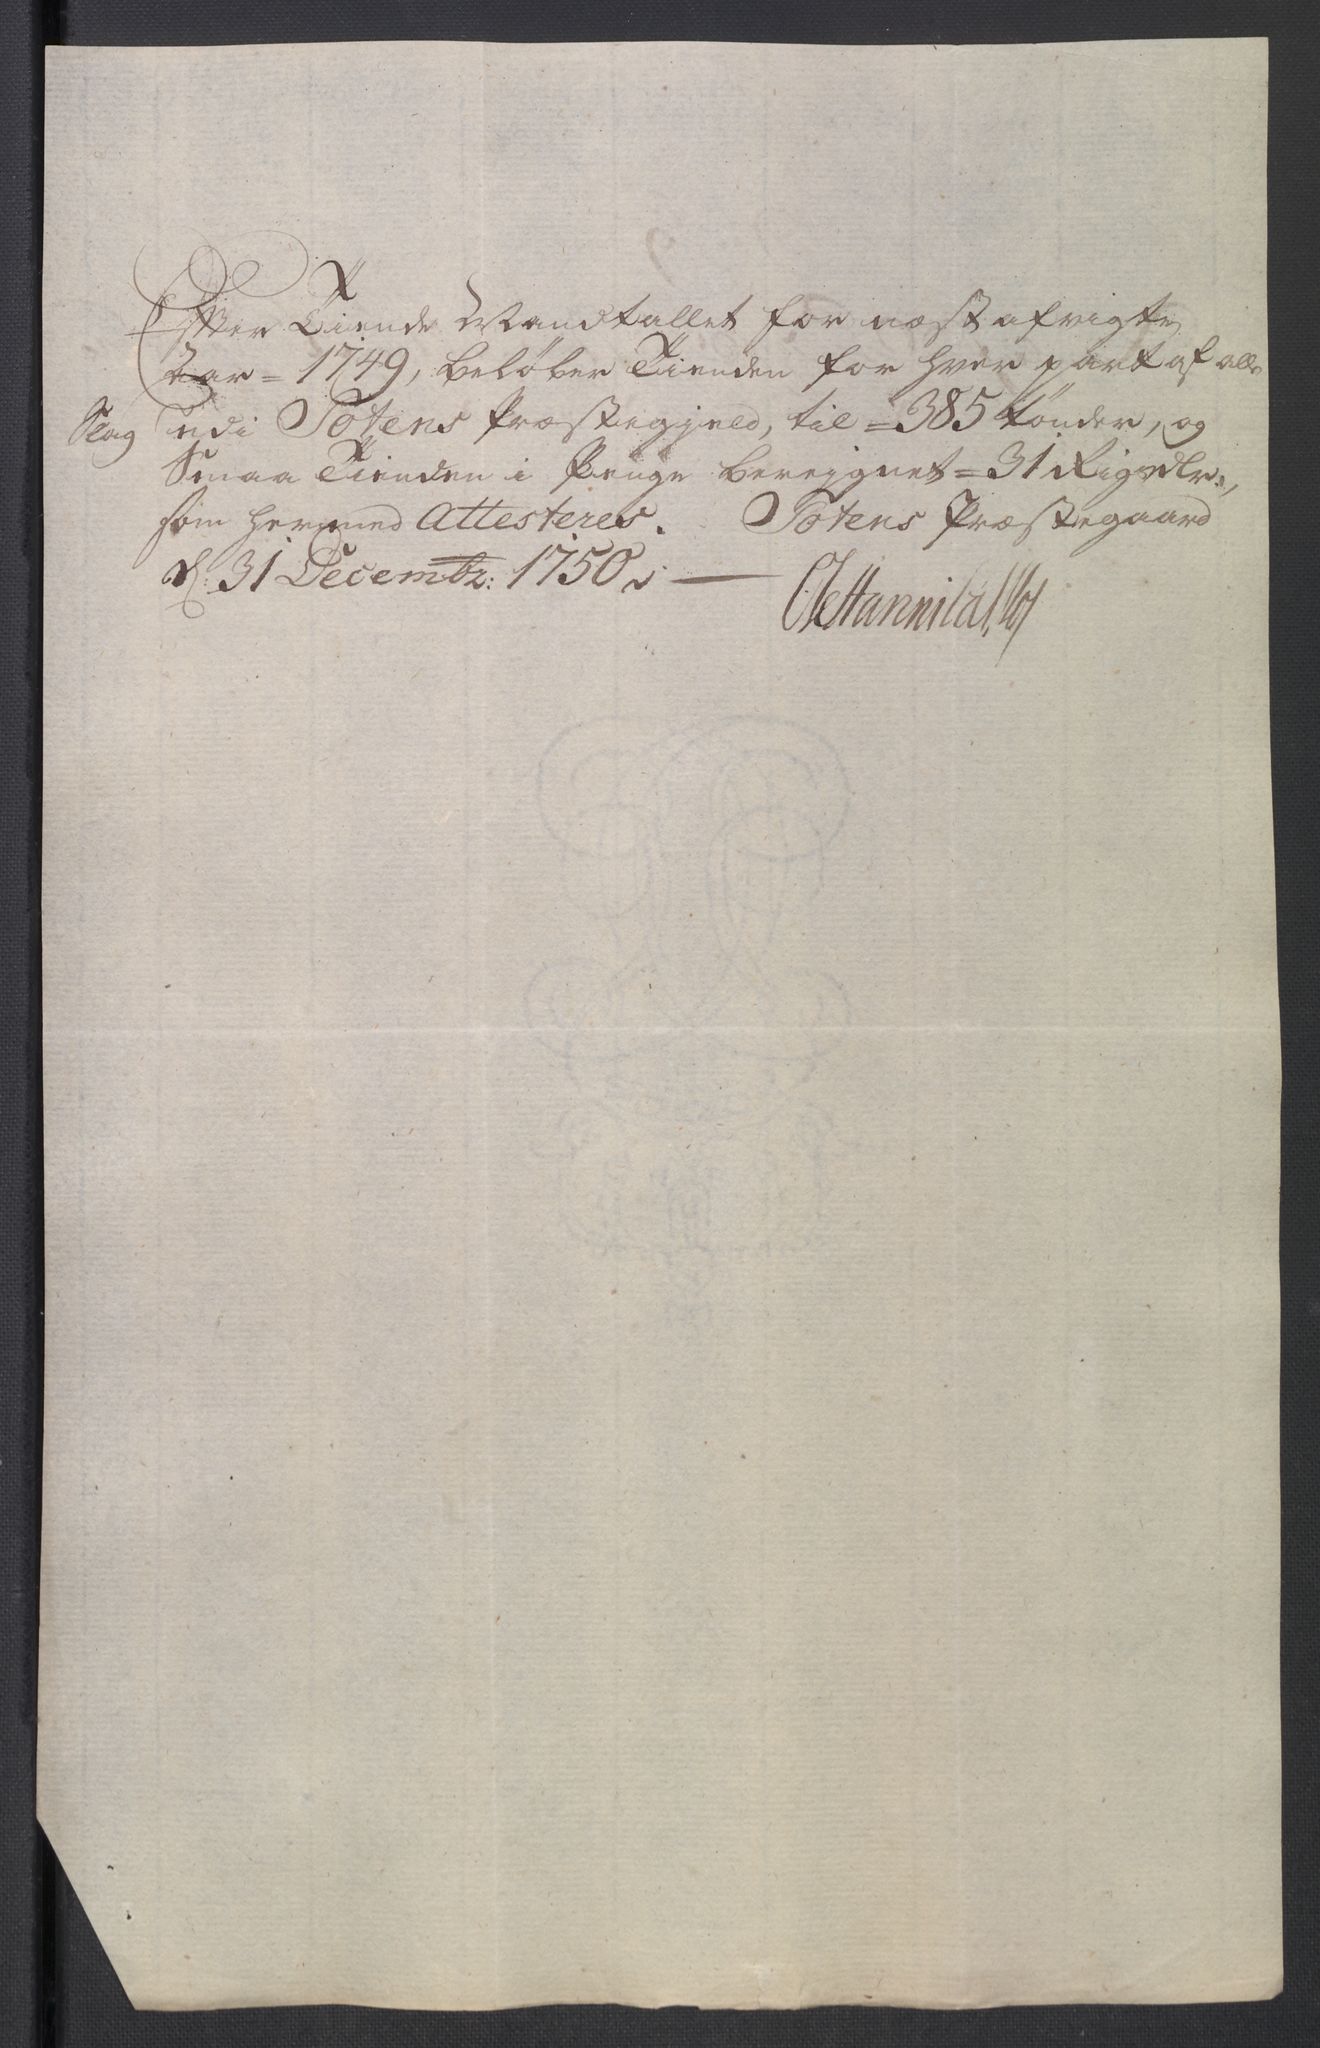 Efter Tiende Mandtallet for næst afvigte
Aar = 1749, beløber Tienden for hver part af alle
Slag udi Totens Præstegjeld, til = 385 tønder, og
Smaa Tienden i Penge bereignet = 31 Rigsdlr:,
som hermed Attesteres. Totens Præstegaard
d: 31 Decembr: 1750.
Ole Hannibal